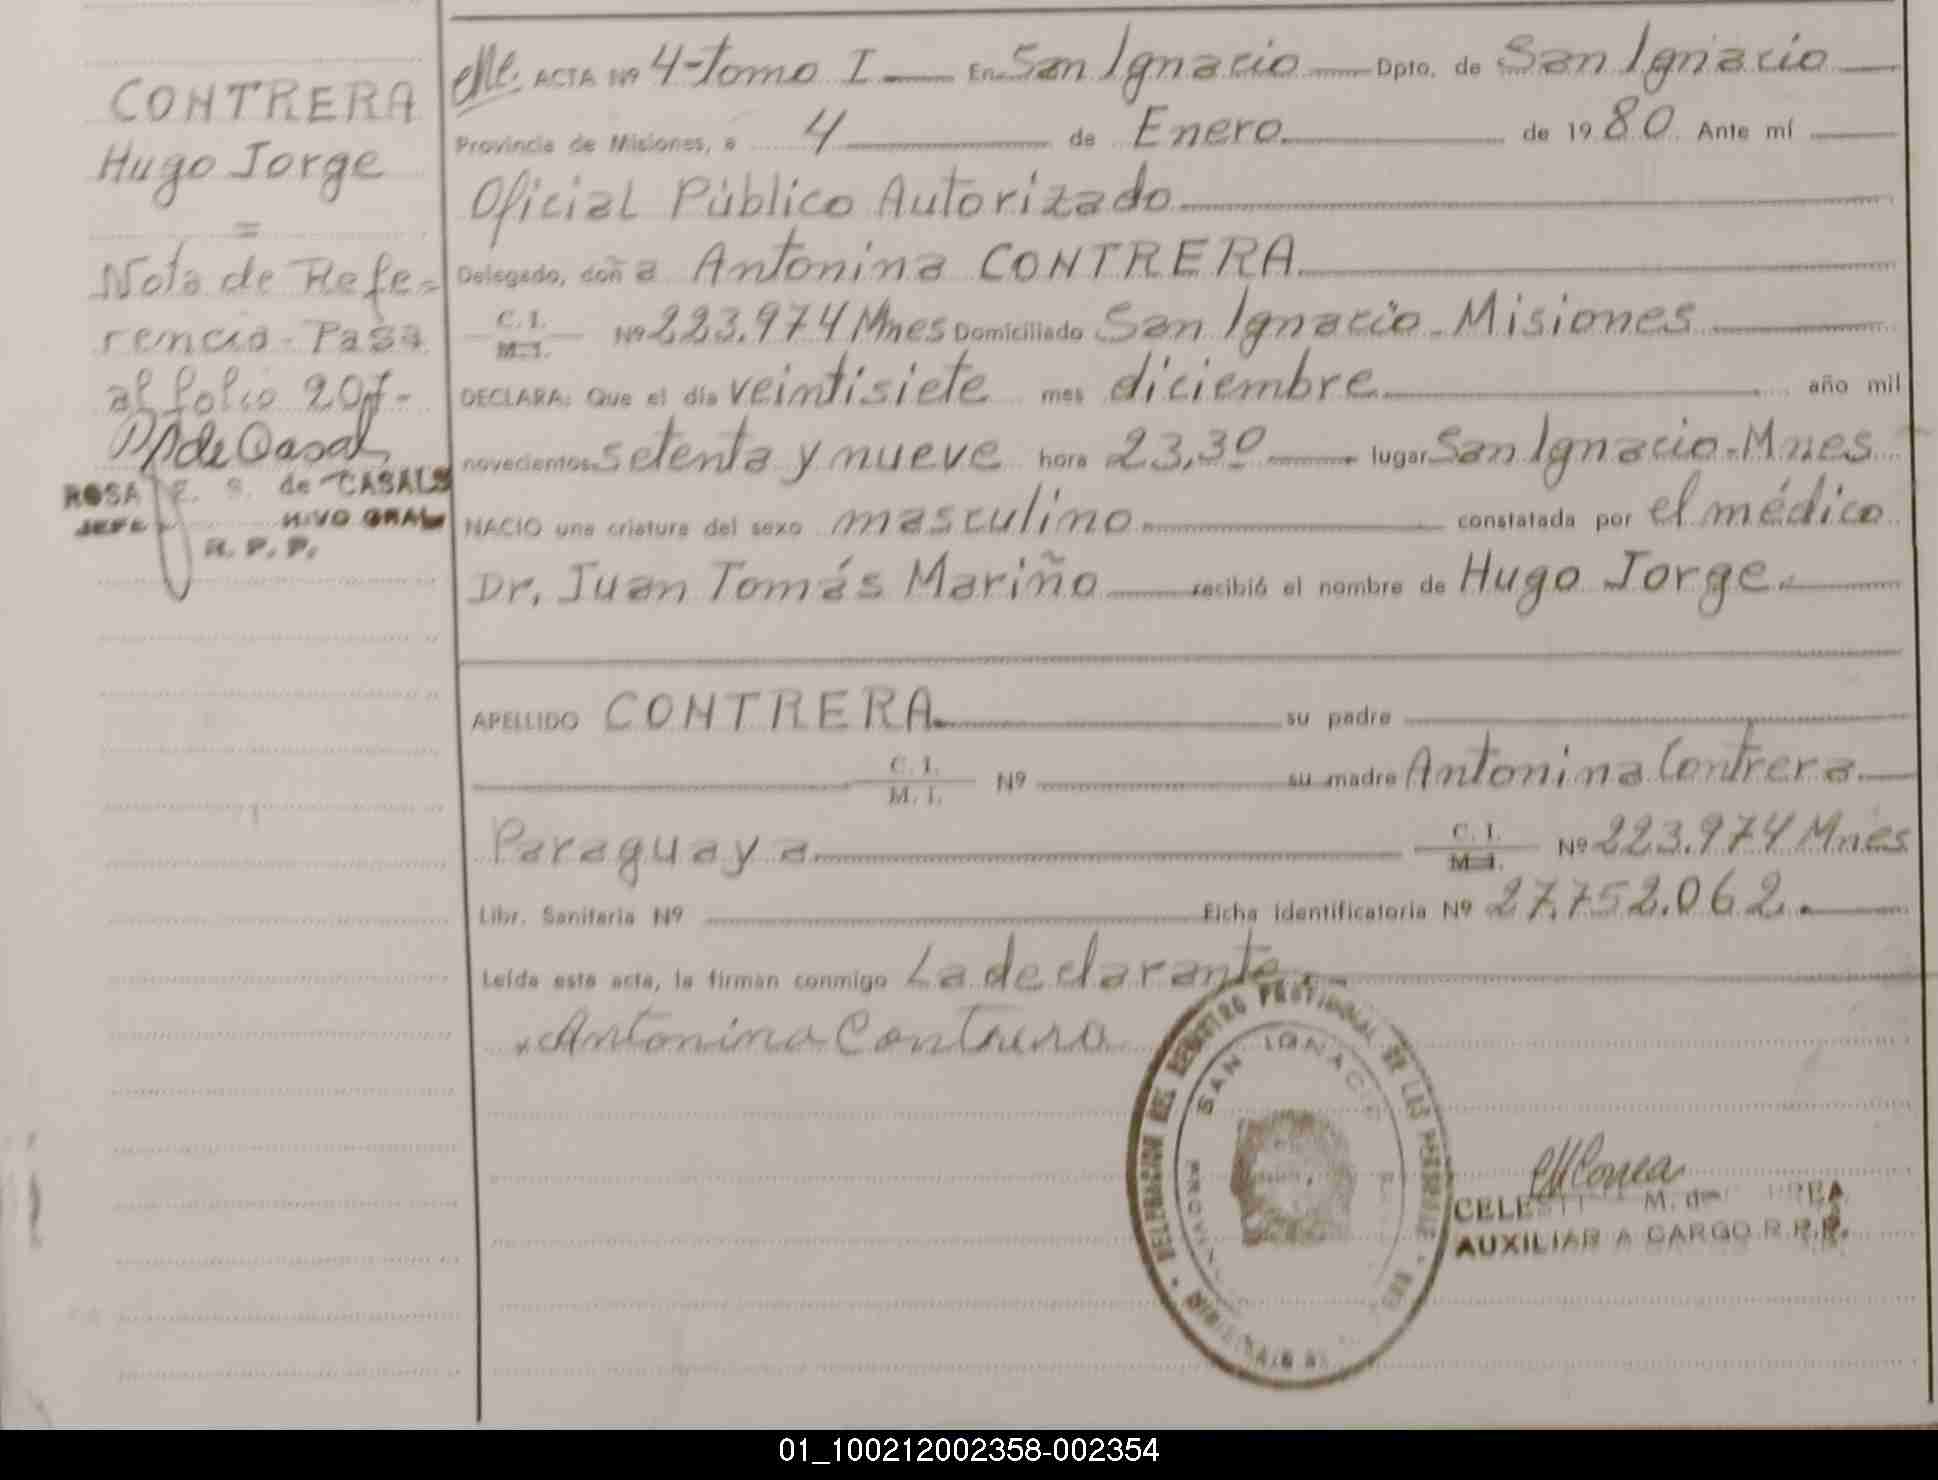 CONTRERA
Hugo Jorge
=
Nota de Refe=
rencia - Pasa
al folio 207-
ROSA E. S. de CASALS
JEFE
R. P. P.
ACTA Nº 4-tomo I En San Ignacio Dpto. de San Ignacio
Provincia de Misiones, a 4 de Enero de 1980 Ante mí
Oficial Público Autorizado
Delegado, doña Antonina CONTRERA
C. I. / M. I. Nº 223.974 Mnes Domiciliado San Ignacio - Misiones
DECLARA: Que el día veintisiete mes diciembre año mil
novecientos setenta y nueve hora 23,30 lugar San Ignacio - Mnes
NACIO una criatura del sexo masculino constatada por el médico
Dr. Juan Tomás Mariño recibió el nombre de Hugo Jorge
APELLIDO CONTRERA su padre
C. I. / M. I. Nº su madre Antonina Contrera
Paraguaya C. I. / M. I. Nº 223.974 Mnes
Libr. Sanitaria Nº Ficha identificatoria Nº 27.752.062.
Leída este acta, la firman conmigo La declarante.-
Antonina Contrera
DELEGACION DEL REGISTRO PROVINCIAL DE LAS PERSONAS
SAN IGNACIO
M. de
AUXILIAR A CARGO R.P.P.
01_100212002358-002354